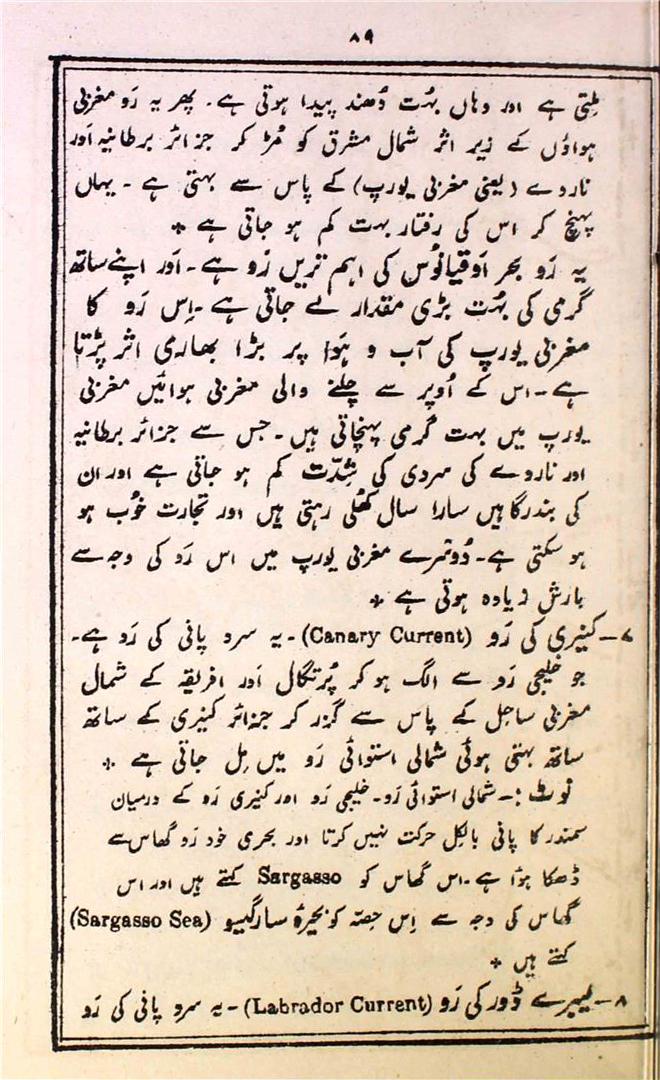 ۸۹
ملتی ہے اور وہاں بہُت دُھند پیدا ہوتی ہے۔ پھر یہ رَو مغربی
ہواؤں کے زیر اثر شمال مشرق کو مُڑ کر جزائر برطانیہ اَور
ناروے (یعنی مغربی یورپ) کے پاس سے بہتی ہے ۔ یہاں
پہنچ کر اس کی رفتار بہت کم ہو جاتی ہے *
یہ رَو بحر اَوقیانُوس کی اہم تریں رَو ہے۔ اَور اپنے ساتھ
گرمی کی بہُت بڑی مقدار لے جاتی ہے ۔ اِس رَو کا
مغربی یورپ کی آب و ہَوا پر بڑا بھاری اثر پڑتا
ہے۔ اس کے اُوپر سے چلنے والی مغربی ہوائیں مغربی
یورپ میں بہت گرمی پہنچاتی ہیں ۔ جس سے جزائر برطانیہ
اور ناروے کی سردی کی شِدّت کم ہو جاتی ہے اور ان
کی بندرگاہیں سارا سال کھُلی رہتی ہیں اور تجارت خُوب ہو
ہو سکتی ہے۔ دُوسرے مغربی یورپ میں اس رَو کی وجہ سے
بارش زیادہ ہوتی ہے *
۷۔ کنیری کی رَو (Canary Current)۔ یہ سرد پانی کی رَو ہے۔
جو خلیجی رَو سے الگ ہو کر پُرتگال اَور افریقہ کے شمال
مغربی ساحِل کے پاس سے گزر کر جزائر کنیری کے ساتھ
ساتھ بہتی ہوئی شمالی استوائی رَو میں مِل جاتی ہے *
نوٹ :۔ شمالی استوائی رَو۔ خلیجی رَو اور کنیری رَو کے درمیان
سمندر کا پانی بالکِل حرکت نہیں کرتا اور بحری خود رَو گھاس سے
ڈھکا ہوُا ہے۔ اس گھاس کو Sargasso کہتے ہیں اور اس
گھاس کی وجہ سے اِس حِصّہ کو بحیرۂ سارگیسو (Sargasso Sea)
کہتے ہیں *
۸۔ لیبرے ڈور کی رَو (Labrador Current)۔ یہ سرد پانی کی رَو